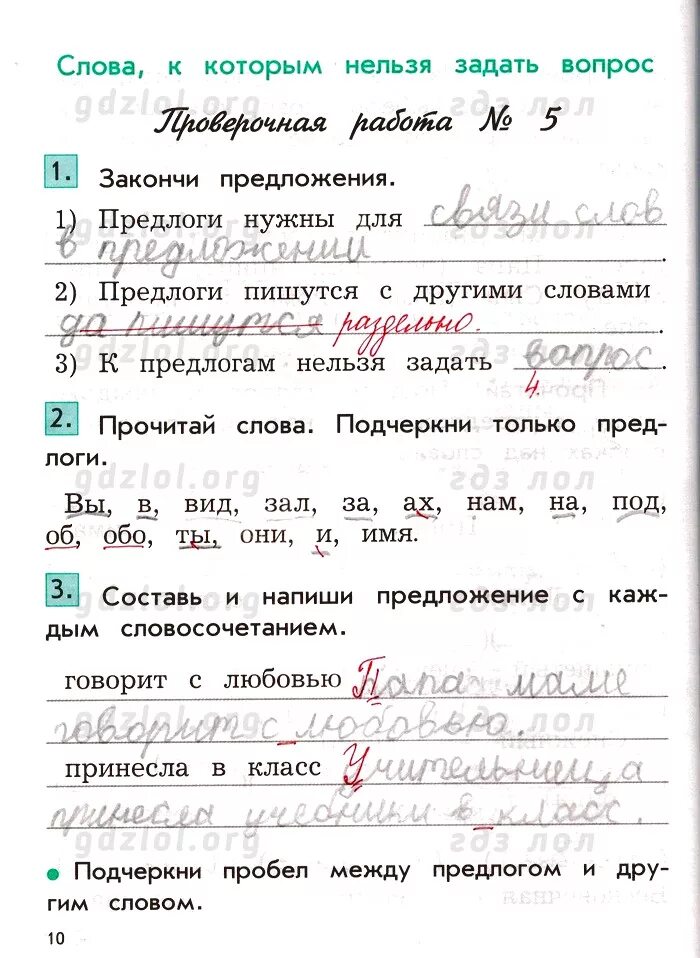 Слова, к которым нельзя задать вопрос
gdzlol.org гдз лол
Проверочная работа № 5
1. Закончи предложения.
1) Предлоги нужны для связи слов
в предложении.
2) Предлоги пишутся с другими словами
да пишутся раздельно.
3) К предлогам нельзя задать вопрос.
4.
2. Прочитай слова. Подчеркни только пред-
логи.
gdzlol.org гдз лол
Вы, в, вид, зал, за, ах, нам, на, под,
об, обо, ты, они, и, имя.
3. Составь и напиши предложение с каж-
дым словосочетанием.
говорит с любовью Папа маме
говорит с любовью.
принесла в класс Учительница
принесла учебники в класс.
gdzlol.org гдз лол
• Подчеркни пробел между предлогом и дру-
гим словом.
10